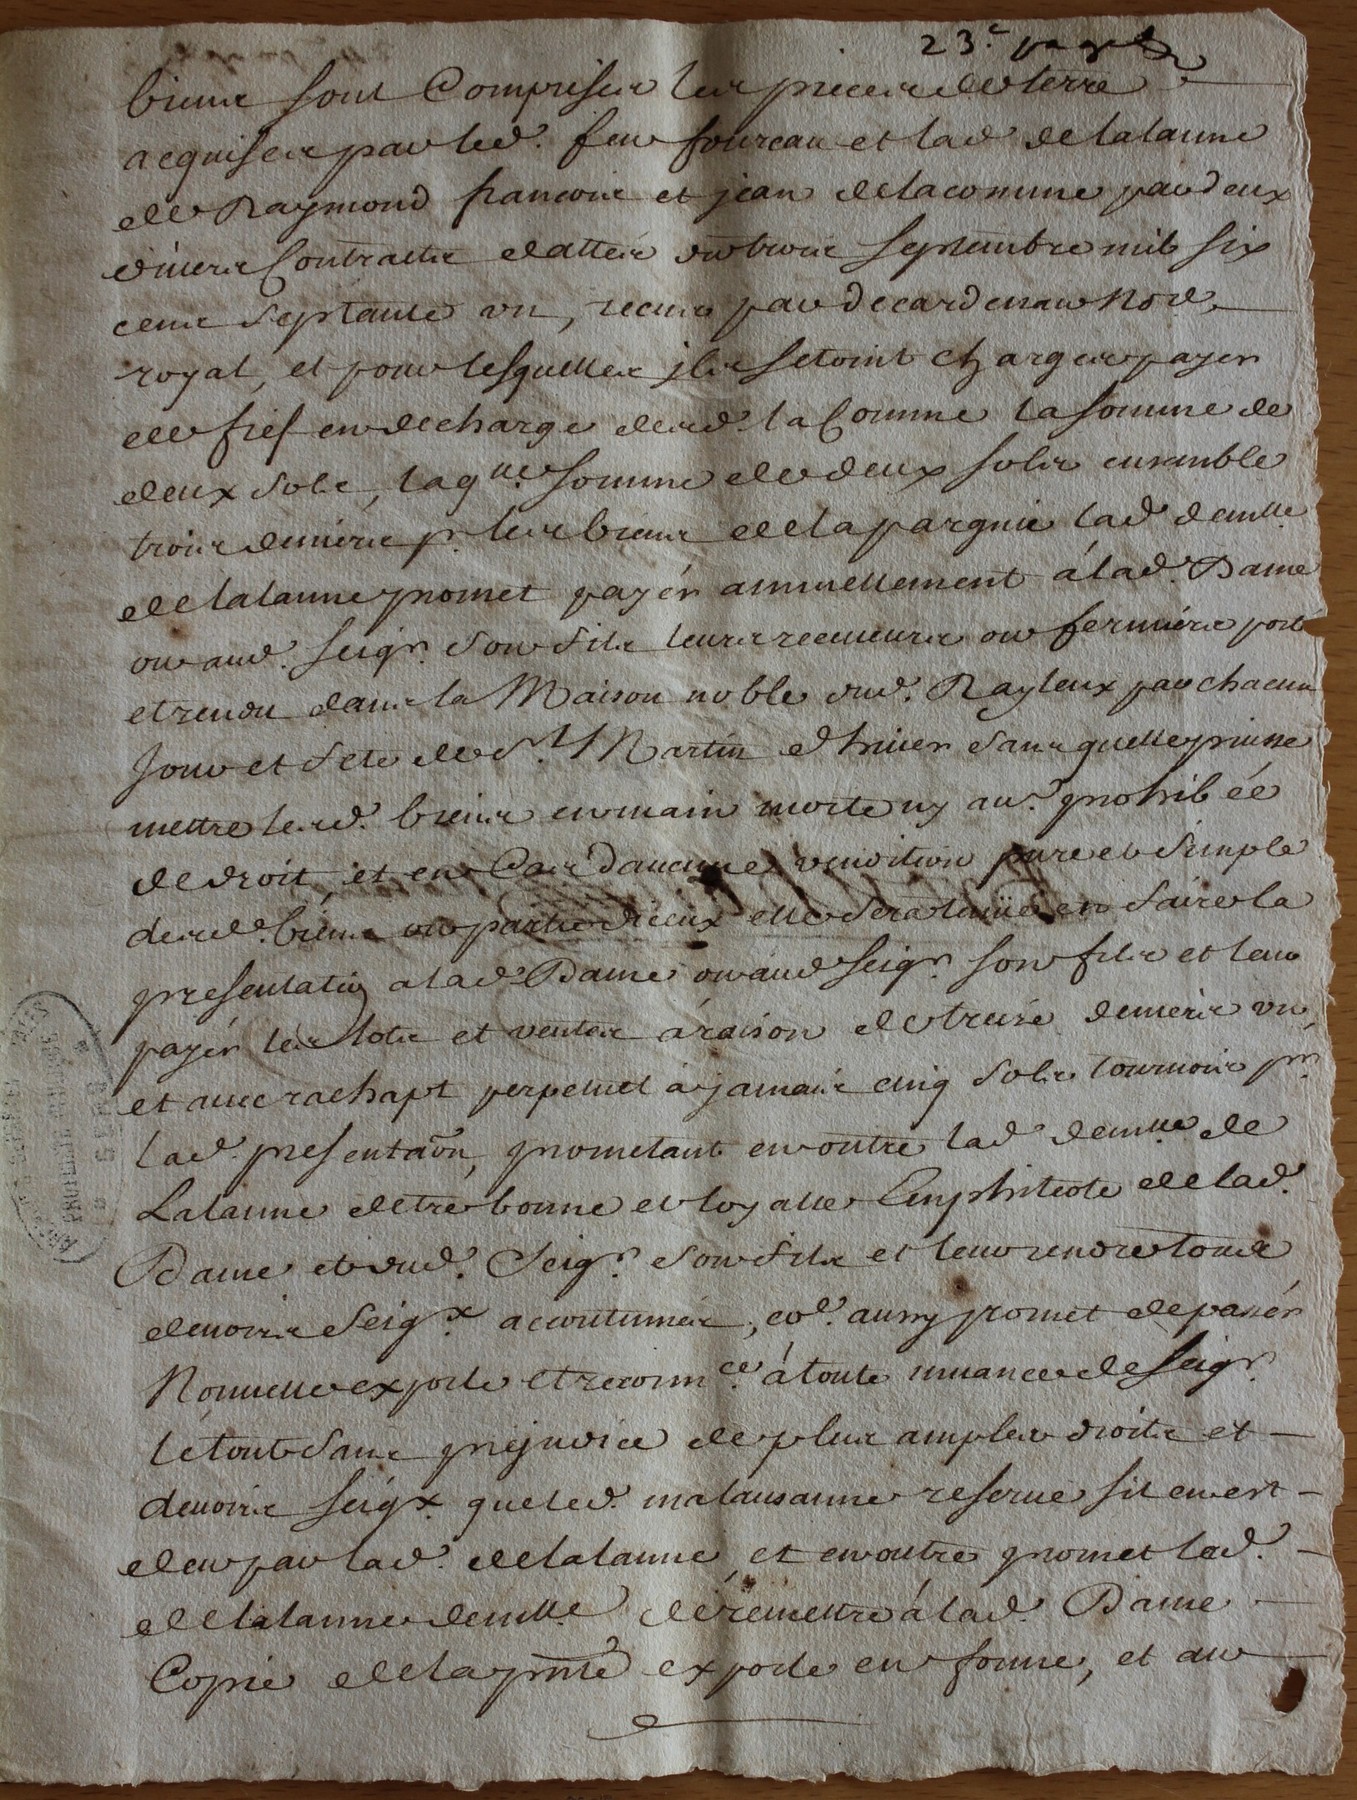 23.e page
biens sont Comprises les pieces de terre
acquises par led. feu foureau et lad de lalanne
de Raymond francois et jean de lacomme par deux
divers Contracts dattés du trois septembre mil six
cens septante un, receus par decardenau Nore.
royal, et pour lesquelles jls setoint charges payer
de fief en decharge desd. la Comme la somme de
deux sols, laqlle. somme de deux sols ensemble
trois deniers pr. les biens de la pargnie lad. demlle.
de lalanne promet payér annuellement á lad. Dame
ou aud. seigr. son fils leurs receveurs ou fermiérs porté
et rendu dans la Maison noble dud. Rayleux par chacun
Jour et fete de St. Martin dhiver sans quelle puisse
mettre lesd. biens en main morte ny aur. prohibée
de droit, et en Cas daucune vendition pure et simple
desd. biéns ou partie dïceux elle sera tenüe en faire la
presentation a lad. Dame ou aud seigr. son fils et leur
payér les lots et ventes á raison de treise deniérs un,
et avec rachapt perpetuel á jamais cinq sols tournois pr.
lad. presentaôn, prometant en outre lad demlle de
Lalanne detre bonne et loyalle Emphiteote de lad.
Dame et dud. Seigr. son fils et leur rendre tous
devoirs seigx. accoutumés, co͏̂e. aussy promet de passér
Nouvelle exporle et reconnce. á toute muance de seigr.
le tout sans prejudice de plus amples droits et
devoirs seigx. que led. malausanne reserve sil en est
deu par lad. de lalanne, et en outre promet lad.
de lalanne demlle. de remettre á lad. Dame
Copie de la pnte exporle en forme, et au